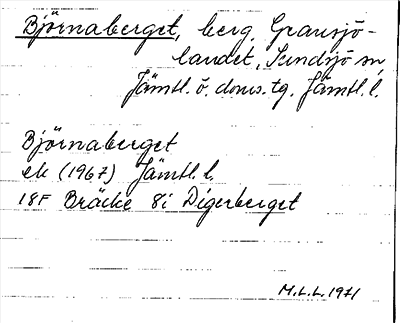 Björnaberget, berg, Gransjö-
landet, Sundsjö sn,
Jämtl. ö. doms. tg. Jämtl. l.
Björnaberget
ek (1967) Jämtl. l.
18F Bräcke 8i Digerberget
M.L.L. 1971